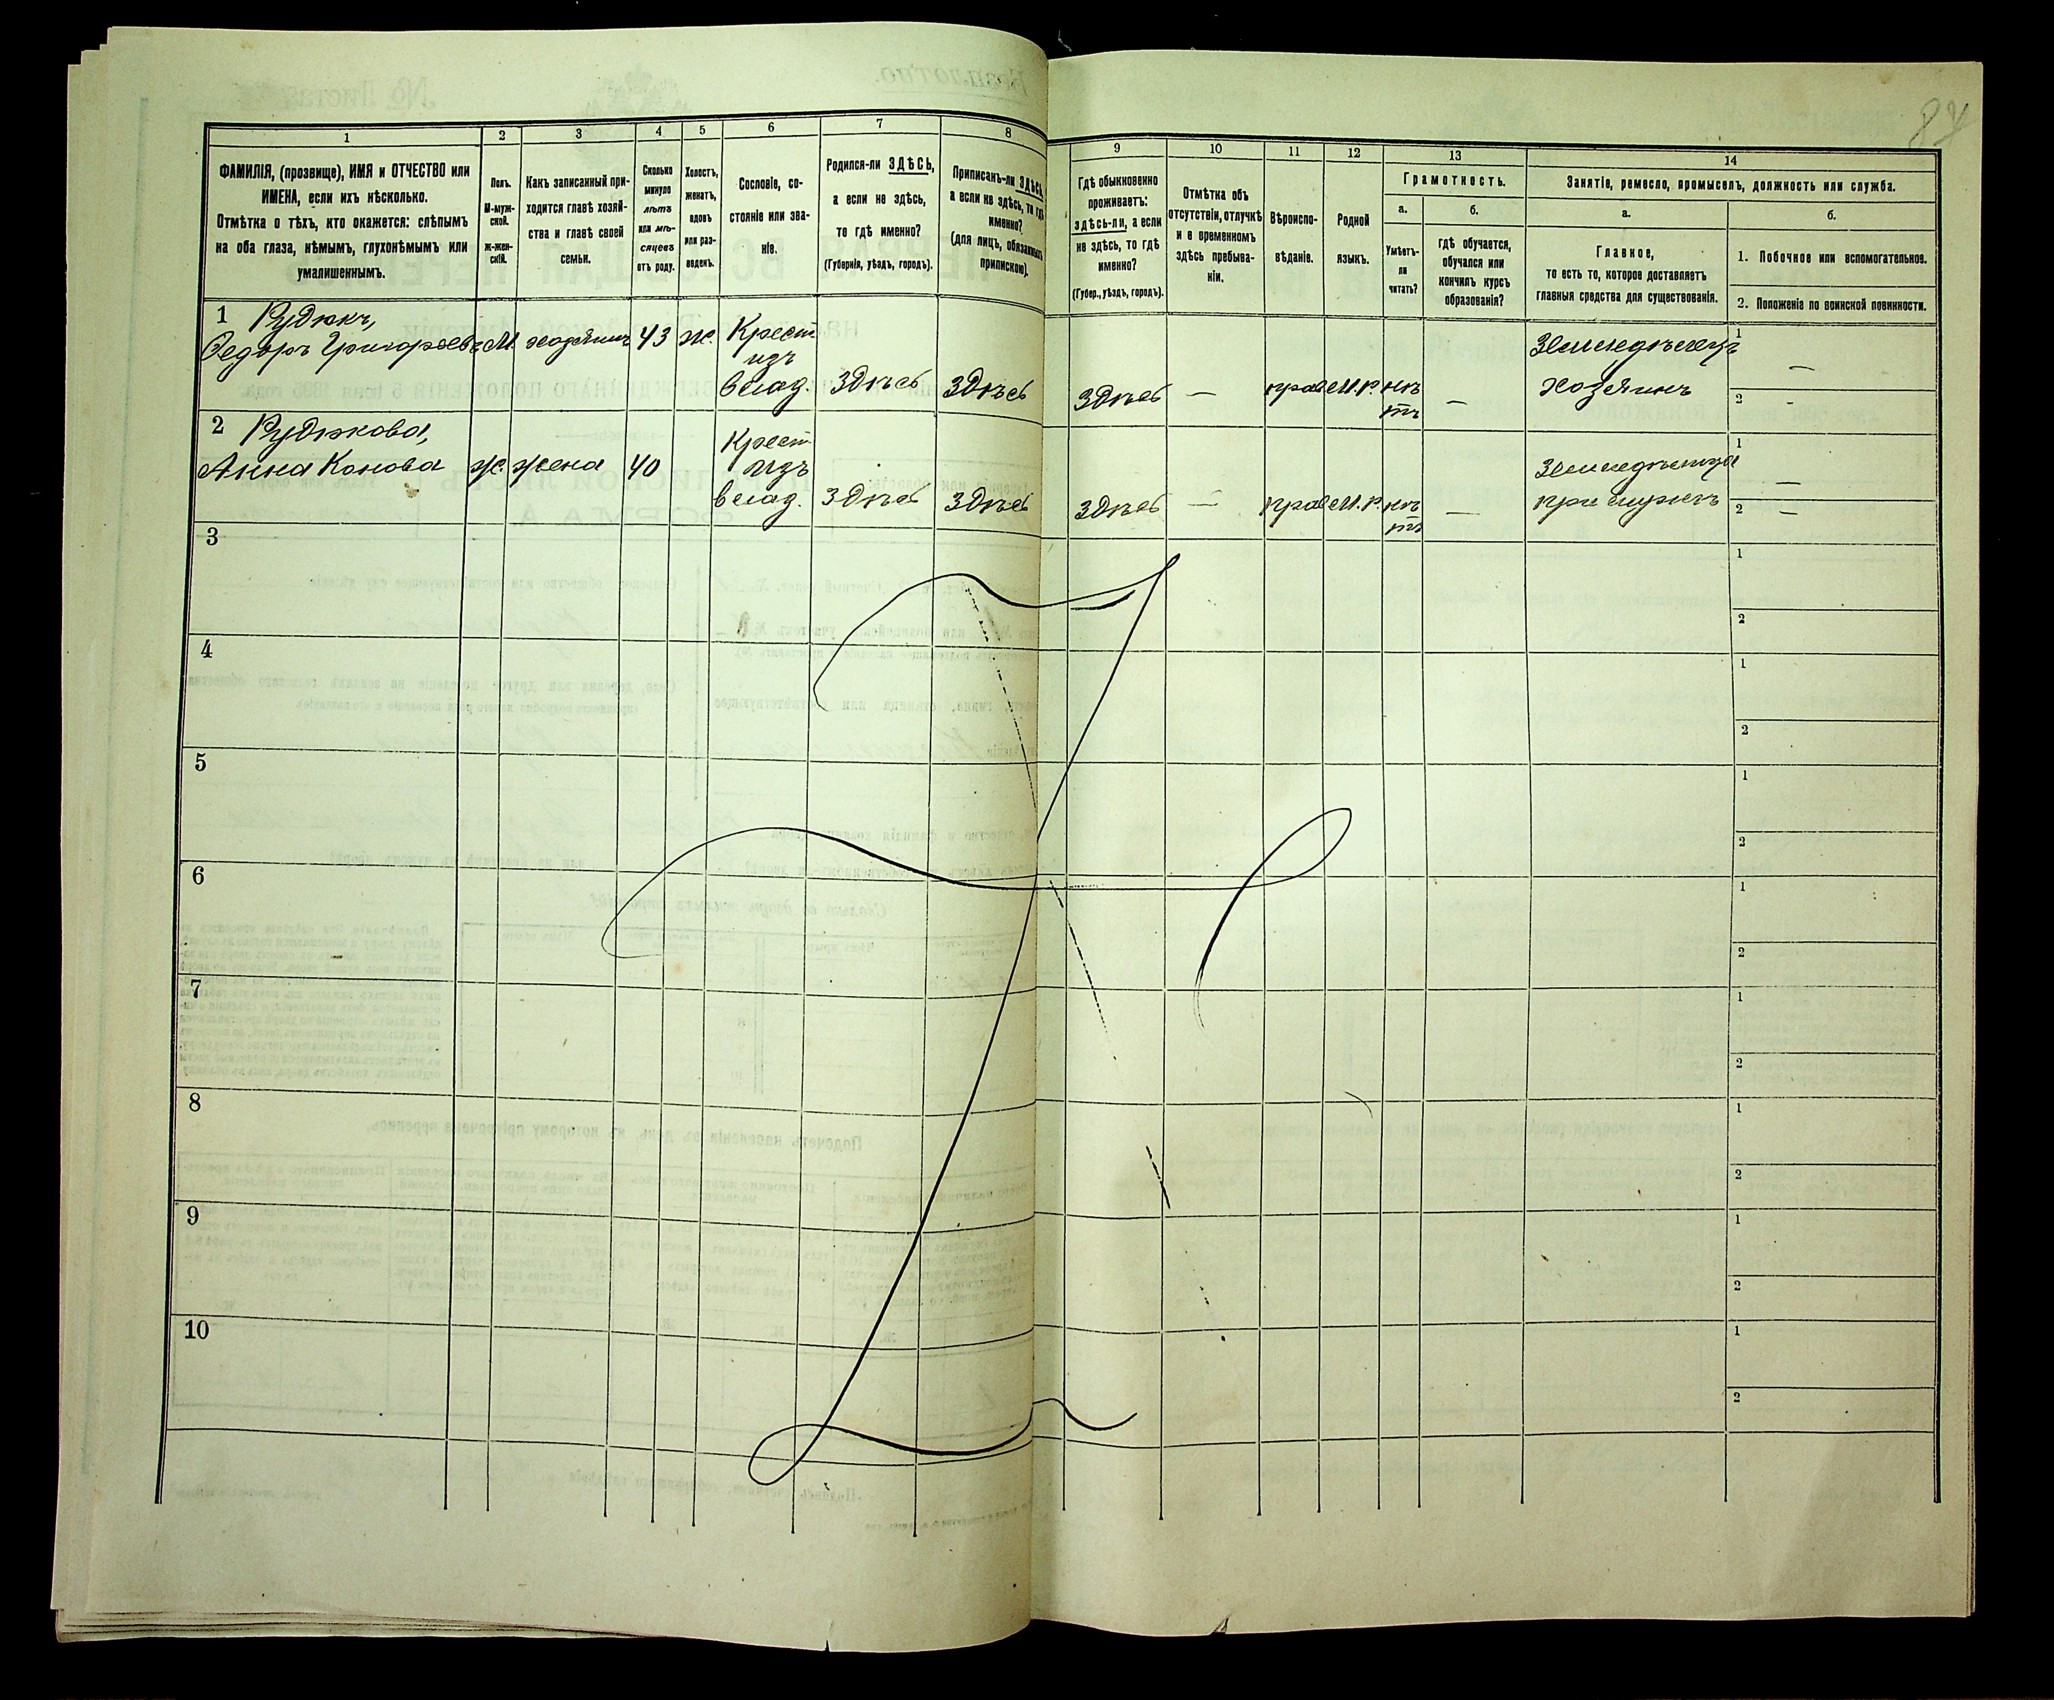 84
1
2
3
4
5
6
7
8
9
10
11
12
13
14
ФАМИЛІЯ, (прозвище), ИМЯ и ОТЧЕСТВО или
ИМЕНА, если ихъ нѣсколько.
Отмѣтка о тѣхъ, кто окажется: слѣпымъ
на оба глаза, нѣмымъ, глухонѣмымъ или
умалишеннымъ.
Полъ.
М-муж-
ской.
Ж-жен-
скій.
Какъ записанный при-
ходится главѣ хозяй-
ства и главѣ своей
семьи.
Сколько
минуло
лѣтъ
или мѣ-
сяцевъ
отъ роду.
Холостъ,
женатъ,
вдовъ
или раз-
веденъ.
Сословіе, со-
стояніе или зва-
ніе.
Родился-ли ЗДѢСЬ,
а если не здѣсь,
то гдѣ именно?
(Губернія, уѣздъ, городъ).
Приписанъ-ли ЗДѢСЬ,
а если не здѣсь, то гдѣ
именно?
(для лицъ, обязанныхъ
припискою).
Гдѣ обыкновенно
проживаетъ:
здѣсь-ли, а если
не здѣсь, то гдѣ
именно?
(Губер., уѣздъ, городъ).
Отмѣтка объ
отсутствіи, отлучкѣ
и о временномъ
здѣсь пребыва-
ніи.
Вѣроиспо-
вѣданіе.
Родной
языкъ.
Грамотность.
а.
б.
Умѣетъ-
ли
читать?
гдѣ обучается,
обучался или
кончилъ курсъ
образованія?
Занятіе, ремесло, промыселъ, должность или служба.
а.
б.
Главное,
то есть то, которое доставляетъ
главныя средства для существованія.
1. Побочное или вспомогательное.
2. Положеніе по воинской повинности.
1 Рудюкъ,
Федоръ Григорьевъ М. хозяинъ 43 ж. Крест
изъ
влад. Здѣсь Здѣсь Здѣсь — прав М.Р. нѣ
тъ — Земледѣлецъ
хозяинъ
1 —
2 —
2 Рудюкова,
Анна Конова ж. жена 40 Крест
изъ
влад. Здѣсь Здѣсь Здѣсь — прав М.Р. нѣ
тъ — Земледѣлица
при мужѣ
1 —
2 —
3
1
2
4
1
2
5
1
2
6
1
2
7
1
2
8
1
2
9
1
2
10
1
2